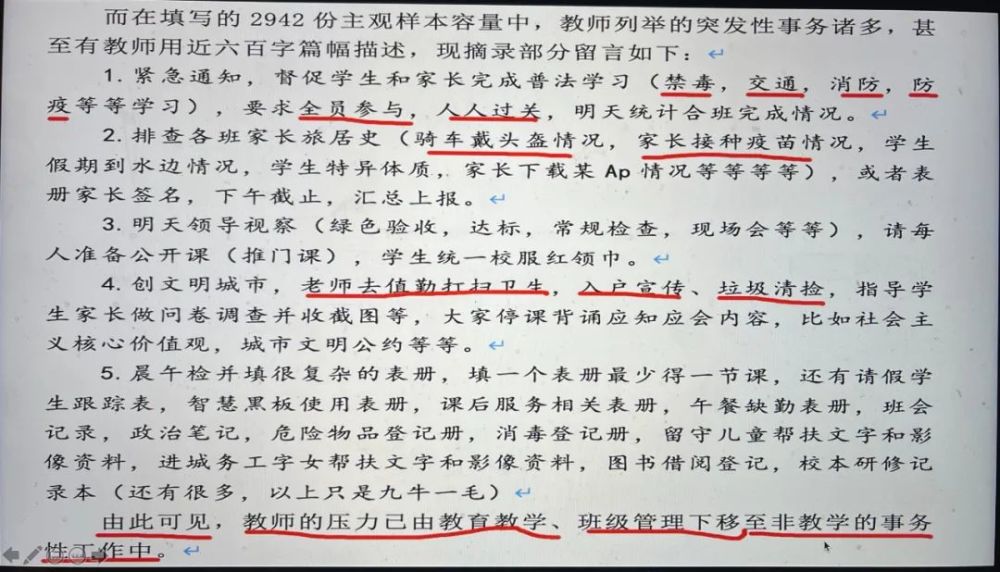 而在填写的 2942 份主观样本容量中，教师列举的突发性事务诸多，甚
至有教师用近六百字篇幅描述，现摘录部分留言如下：
1. 紧急通知，督促学生和家长完成普法学习（禁毒，交通，消防，防
疫等等学习），要求全员参与，人人过关，明天统计合班完成情况。
2. 排查各班家长旅居史（骑车戴头盔情况，家长接种疫苗情况，学生
假期到水边情况，学生特异体质，家长下载某 Ap 情况等等等等），或者表
册家长签名，下午截止，汇总上报。
3. 明天领导视察（绿色验收，达标，常规检查，现场会等等），请每
人准备公开课（推门课），学生统一校服红领巾。
4. 创文明城市，老师去值勤扛扫卫生，入户宣传、垃圾清捡，指导学
生家长做问卷调查并收截图等，大家停课背诵应知应会内容，比如社会主
义核心价值观，城市文明公约等等。
5. 晨午检并填很复杂的表册，填一个表册最少得一节课，还有请假学
生跟踪表，智慧黑板使用表册，课后服务相关表册，午餐缺勤表册，班会
记录，政治笔记，危险物品登记册，消毒登记册，留守儿童帮扶文字和影
像资料，进城务工字女帮扶文字和影像资料，图书借阅登记，校本研修记
录本（还有很多，以上只是九牛一毛）
由此可见，教师的压力已由教育教学、班级管理下移至非教学的事务
性工作中。